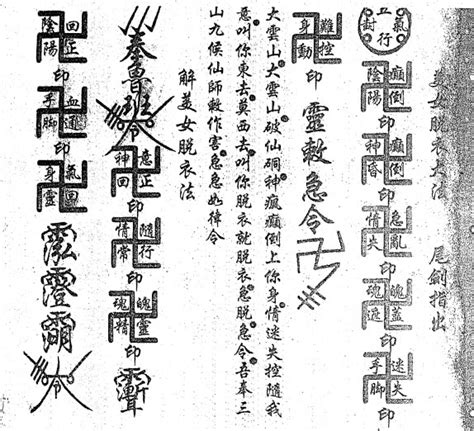 美女脫衣大法 尾劍指出
癲倒
陰陽
印
癲倒
神昏
印
急亂
情失
印
魄蓋
魂遮
印
迷失
手腳
印
難控
身動
印
靈敕急令
大雲山大雲山破仙硐神瘋癲倒上你身情迷失控隨我
意叫你東去莫西去叫你脫衣就脫衣急脫急令吾奉三
山九候仙師敕作害急急如律令
解美女脫衣法
奉魯班令
意正
神回
印
隨行
情常
印
魄靈
魂精
印
回正
陰陽
印
血通
手腳
印
氣回
身靈
令